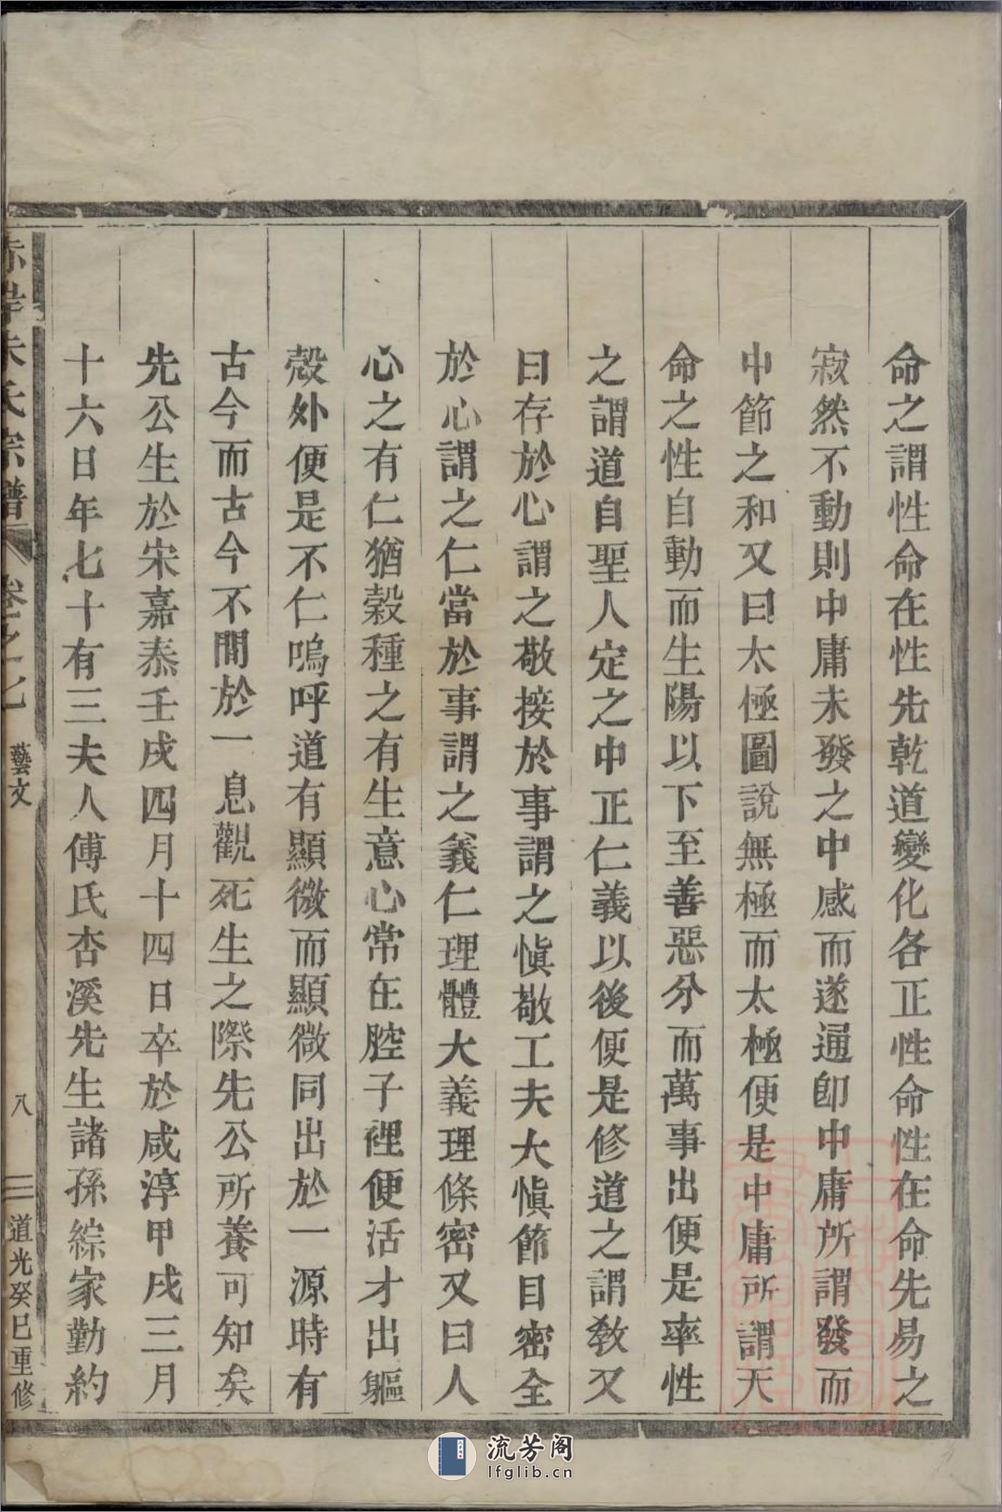 命之謂性命在性先乾道變化各正性命性在命先易之
寂然不動則中庸未發之中感而遂通卽中庸所謂發而
中節之和又曰太極圖說無極而太極便是中庸所謂天
命之性自動而生陽以下至善惡分而萬事出便是率性
之謂道自聖人定之中正仁義以後便是修道之謂教又
曰存於心謂之敬接於事謂之慎敬工夫大慎節目密全
於心謂之仁當於事謂之義仁理體大義理條密又曰人
心之有仁猶穀種之有生意心常在腔子裡便活才出軀
殼外便是不仁嗚呼道有顯微而顯微同出於一源時有
古今而古今不間於一息觀死生之際先公所養可知矣
先公生於宋嘉泰壬戌四月十四日卒於咸淳甲戌三月
十六日年七十有三夫人傅氏杏溪先生諸孫綜家勤約
赤岸朱氏宗譜 卷之七 藝文 八 道光癸巳重修
流芳阁
lfglib.cn